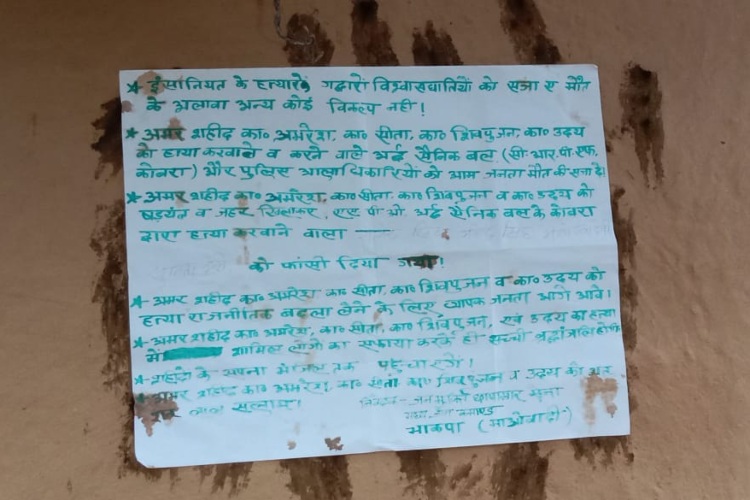 * इंसानियत के हत्यारों गद्दारों विश्वासघातियों को सजा ए मौत
के अलावा अन्य कोई विकल्प नहीं!
* अमर शहीद का० अमरेश, का० सीता, का० शिवपुजन, का० उदय
को हत्या करवाने व करने वाले अर्द्ध सैनिक बल (सी.आर.पी.एफ.
कोबरा) और पुलिस आलाधिकारियों को आम जनता मौत की सजा दें।
* अमर शहीद का० अमरेश, का० सीता, का० शिवपुजन व का० उदय को
षडयंत्र व जहर खिलाकर, एस पी ओ अर्द्ध सैनिक बल के कोबरा
द्वारा हत्या करवाने वाला —
को फांसी दिया गया!
* अमर शहीद का० अमरेश का० सीता, का० शिवपुजन व का० उदय को
हत्या राजनीतिक बदला लेने के लिए व्यापक जनता आगे आवें।
* अमर शहीद का० अमरेश, का० सीता, का० शिवपुजन, एवं उदय का हत्या
में शामिल लोगों का सफाया करके ही सच्ची श्रद्धांजलि होगी
* शहीदों के सपना मंजिल तक पहुचाएंगे!
* अमर शहीद का० अमरेश, का० सीता का० शिवपुजन व उदय को
लाल सलाम!
निवेदक - जन मुक्ति छापामार सेना
भाकपा (माओवादी)